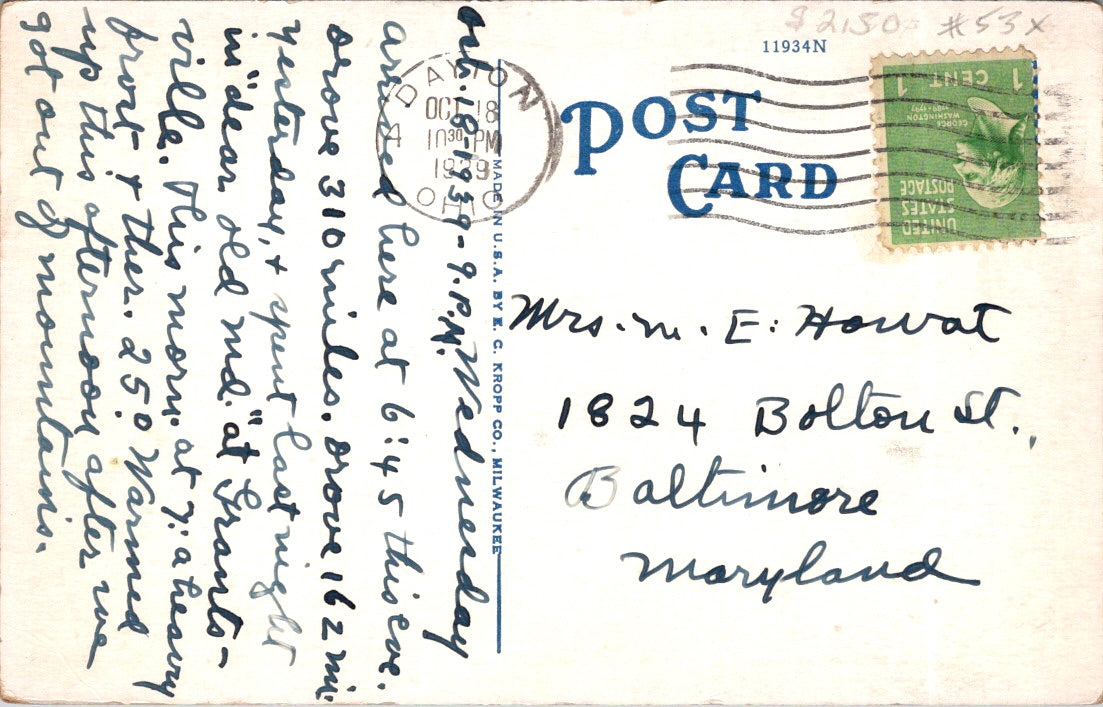 $2.50 #53x
11934N
POST
CARD
DAYTON
OCT 18
10 30 PM
1939
OHIO
4
UNITED
STATES
POSTAGE
GEORGE
WASHINGTON
1789-1797
1 CENT 1
MADE IN U.S.A. BY E. C. KROPP CO., MILWAUKEE
Oct. 18-1939-9.P.M. Wednesday
arrived here at 6:45 this eve.
Drove 310 miles. Drove 162 mi.
yesterday, & spent last night
in "dear old Md." at Grants-
ville. This morn. at 7: a heavy
frost & ther. 25.° Warmed
up this afternoon after we
got out of mountains.
Mrs. M. E. Howat
1824 Bolton St.,
Baltimore
Maryland